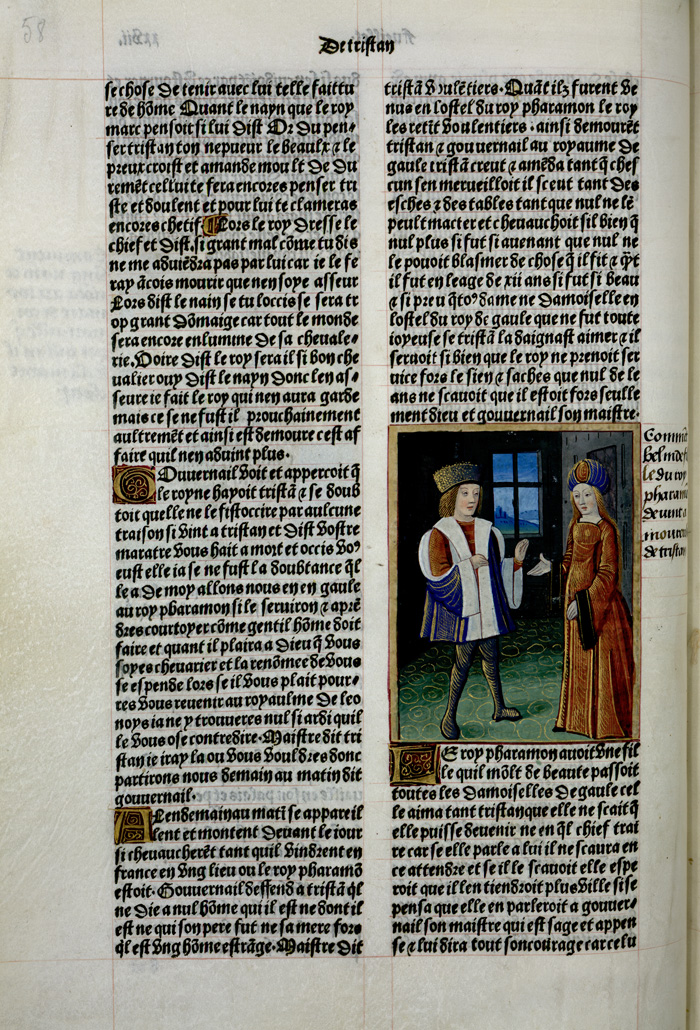 58
De tristan
se chose De tenir auec lui telle faittu
re de hõme Quant le nayn que le roy
marc pensoit si lui Dist Or du pen⸗
ser tristan ton nepueur le beaulx ⁊ le
preux croist et amande moult De Du
remẽt cellui te fera encores penser tri
ste et doulent et pour lui te clameras
encores chetif. Lors le roy Dresse le
chief et Dist. si grant mal cõme tu dis
ne me aduiẽdra pas par lui car ie le fe
ray ãcois mourir que nen soye asseur
Lors dist le nain se tu loccis se sera tr
op grant Dõmaige car tout le monde
sera encore enlumine De sa cheuale⸗
rie. Voire Dist le roy sera il si bon che
ualier ouy Dist le nayn Donc len as⸗
seure ie fait le roy qui nen aura garde
mais ce se ne fust il prouchainement
aultremẽt et ainsi est demoure cest af
faire quil nen aduint plus.
Gouuernail Voit et appercoit q̃
le royne hayoit tristã ⁊ se doub
toit quelle ne le fist occire par aulcune
traison si vint a tristan et Dist Vostre
maratre Vous hait a mort et occis Vo⁹
eust elle ia se ne fust la doubtance q̃l
le a de moy allons nous en en gaule
au roy pharamon si le seruiron ⁊ aprẽ
dres courtoyer cõme gentil hõme doit
faire et quant il plaira a Dieu q̃ Vous
soyes cheuarier et la renõmee de Vous
se espende lors se il Vous plait pour⸗
res Vous reuenir au royaulme De leo
noys ia ne y trouueres nul si ardi quil
le Vous ose contredire. Maistre dit tri
stan ie iray la ou Vous Vouldres donc
partirons nous demain au matin dit
gouuernail.
A Lendemain au matĩ se appareil
lent et montent Deuant le iour
si cheuaucherẽt tant quil Vindrent en
france en Vng lieu ou le roy pharamõ
estoit. Gouuernail deffend a tristã q̃l
ne Die a nul hõme qui il est ne dont il
est ne qui son pere fut ne sa mere fors
q̃l est Vng hõme estrãge. Maistre Dit
tristã Voulẽtiers. Quãt ilz furent Ve
nus en lostel du roy pharamon le roy
les retĩt Voulentiers. ainsi demourẽt
tristan ⁊ gouuernail au royaume De
gaule tristã creut ⁊ amẽda tant q̃ chef
cun sen merueilloit il sceut tant Des
esches ⁊ des tables tant que nul ne lẽ
peult macter et cheuauchoit sil bien q̃
nul plus si fut si auenant que nul ne
le pouoit blasmer de chose q̃ il fit ⁊ q̃t
il fut en leage de xii ans si fut si beau
⁊ si preu q̃ to⁹ dame ne Damoiselle en
lostel du roy de gaule que ne fut toute
ioyeuse se tristã la daignast aimer ⁊ il
seruoit si bien que le roy ne prenoit ser
uice fors le sien ⁊ saches que nul de le
ans ne scauoit que il estoit fors seulle
ment dieu et gouuernail son maistre.
Commẽt
le du roy
pharamõ
de vint a
mour
de tristan
Le roy pharamon auoit Vne fil
le quil mõlt de beaute passoit
toutes les Damoiselles De gaule cel
le aima tant tristan que elle ne scait q̃
elle puisse deuenir ne en q̃l chief trai
re car se elle parle a lui il ne scaura en
ce attendre et se il le scauoit elle espe
roit que il len tiendroit plus Ville si se
pensa que elle en parleroit a gouuer⸗
nail son maistre qui est sage et appen
se ⁊ lui dira tout son courage car celu